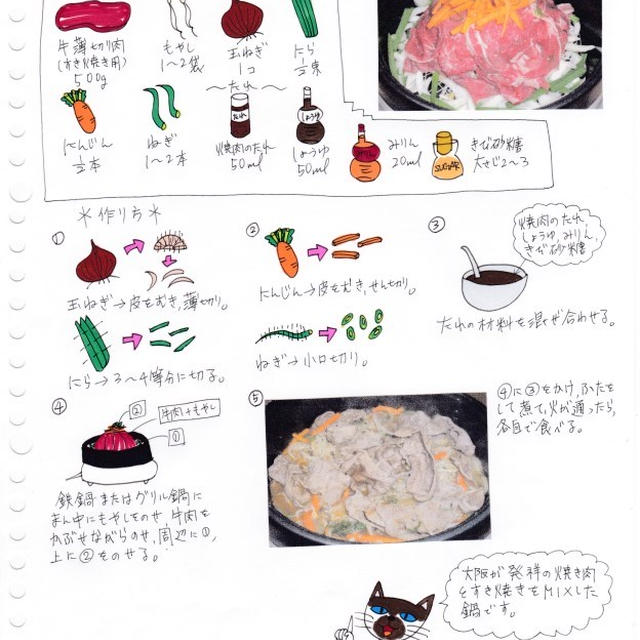 牛薄切り肉
(すき焼き用)
500g
もやし
1〜2袋
玉ねぎ
1コ
にら
1/2束
〜たれ〜
にんじん
1/2本
ねぎ
1〜2本
たれ
焼肉のたれ
50ml
しょうゆ
しょうゆ
50ml
みりん
みりん
20ml
SUGAR
きび砂糖
大さじ2〜3
＊作り方＊
①
玉ねぎ→皮をむき,薄切り。
にら→3〜4等分に切る。
②
にんじん→皮をむき,せん切り。
ねぎ→小口切り。
③
焼肉のたれ,
しょうゆ,みりん,
きび砂糖
たれの材料を混ぜ合わせる。
④
②
牛肉+もやし
①
鉄鍋またはグリル鍋に
まん中にもやしをのせ,牛肉を
かぶせながらのせ,周辺に①,
上に②をのせる。
⑤
④に③をかけ,ふたを
して煮て,火が通ったら,
各自で食べる。
大阪が発祥の焼き肉
とすき焼きをMIXした
鍋です。